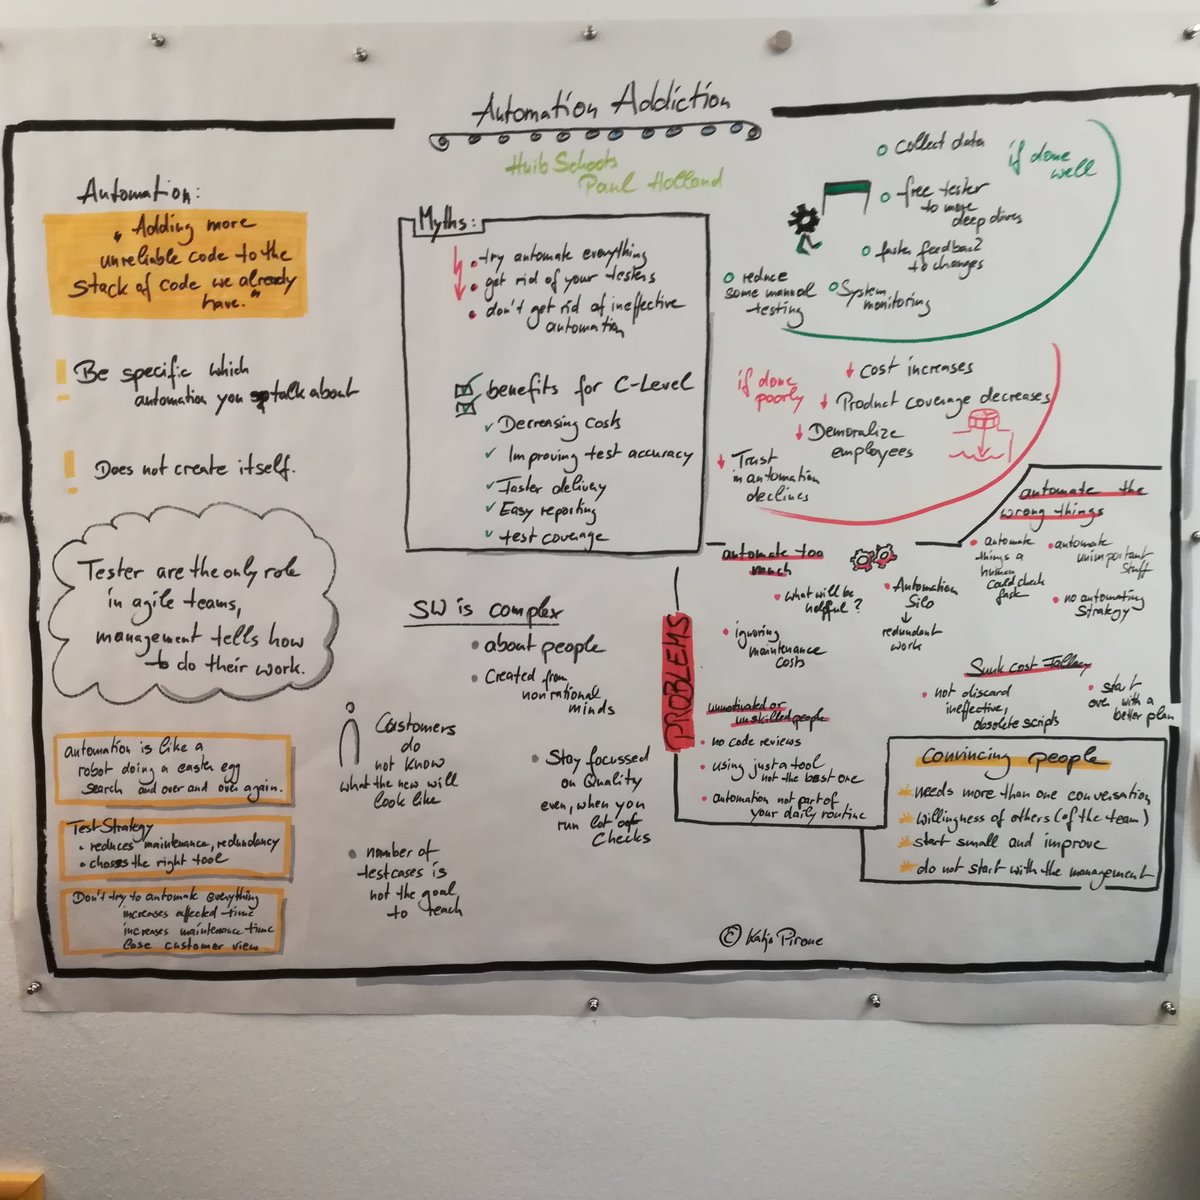 Automation Addiction
Huib Schoots
Paul Holland
Automation:
"Adding more
unreliable code to the
stack of code we already
have."
! Be specific which
automation you talk about
! Does not create itself.
Tester are the only role
in agile teams,
management tells how
to do their work.
automation is like a
robot doing a easter egg
search and over and over again.
Test Strategy
• reduces maintenance, redundancy
• choses the right tool
Don't try to automate everything
increases affected time
increases maintenance time
lose customer view
Myths:
• try automate everything
• get rid of your testers
• don't get rid of ineffective
automation
benefits for C-Level
✓ Decreasing costs
✓ Improving test accuracy
✓ Faster delivery
✓ Easy reporting
✓ test coverage
SW is complex
• about people
• Created from
nonrational
minds
Customers
do
not know
what the new will
look like
• Stay focussed
on Quality
even, when you
run lot of
Checks
• number of
testcases is
not the goal
to reach
if done
well
collect data
free tester
to more
deep dives
faster feedback
to changes
System
monitoring
reduce
some manual
testing
if done
poorly
↓ Cost increases
↓ Product coverage decreases
↓ Demoralize
employees
↓ Trust
in automation
declines
PROBLEMS
automate too
much
• what will be
helpful?
• ignoring
maintenance
costs
• Automation
Silo
↓
redundant
work
automate the
wrong things
• automate
things a
human
could check
fast
• automate
unimportant
stuff
• no automating
strategy
Sunk cost Fallacy
• not discard
ineffective,
obsolete scripts
• start
over with a
better plan
unmotivated or
unskilled people
• no code reviews
• using just a tool
not the best one
• automation not part of
your daily routine
Convincing people
* needs more than one conversation
* willingness of others (of the team)
* start small and improve
* do not start with the management
© Katja Pirone